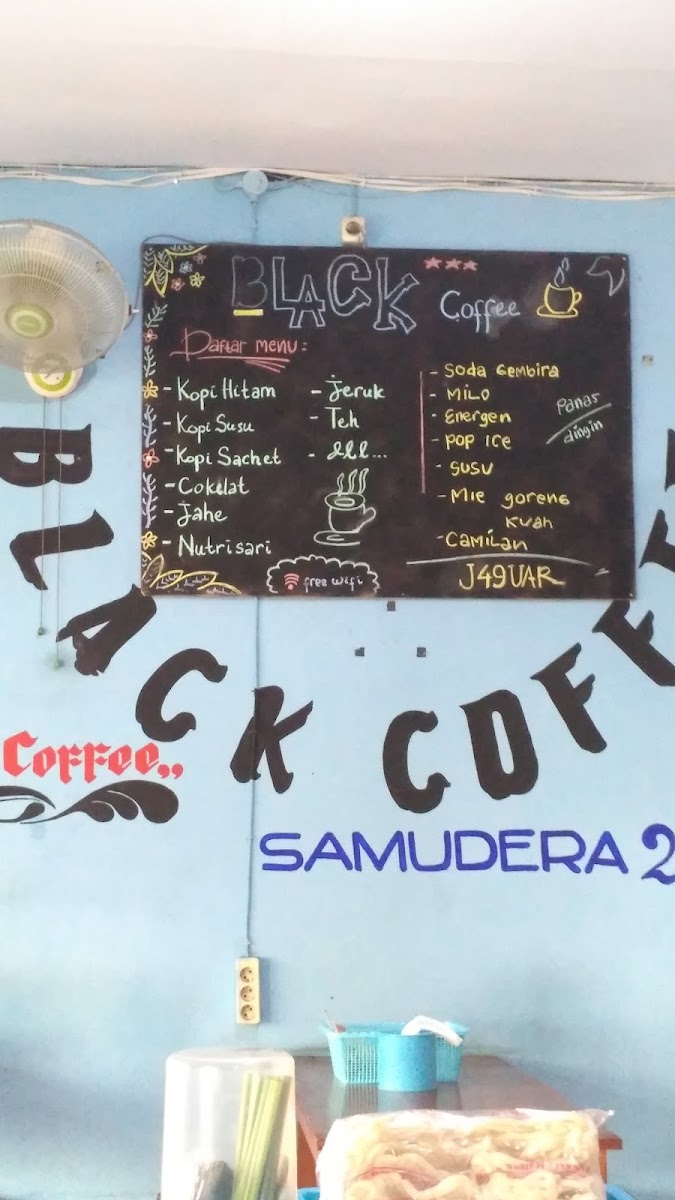 BLACK Coffee
Daftar menu:
- Kopi Hitam
- Kopi Susu
- Kopi Sachet
- Coklat
- Jahe
- Nutrisari
- Jeruk
- Teh
- dll...
- Soda Gembira
- MILO
- Energen
- POP ICE
- SUSU
- Mie goreng
kuah
- CAMILAN
Panas
dingin
free wifi
J49UAR
BLACK COFF
Coffee,,
SAMUDERA 2